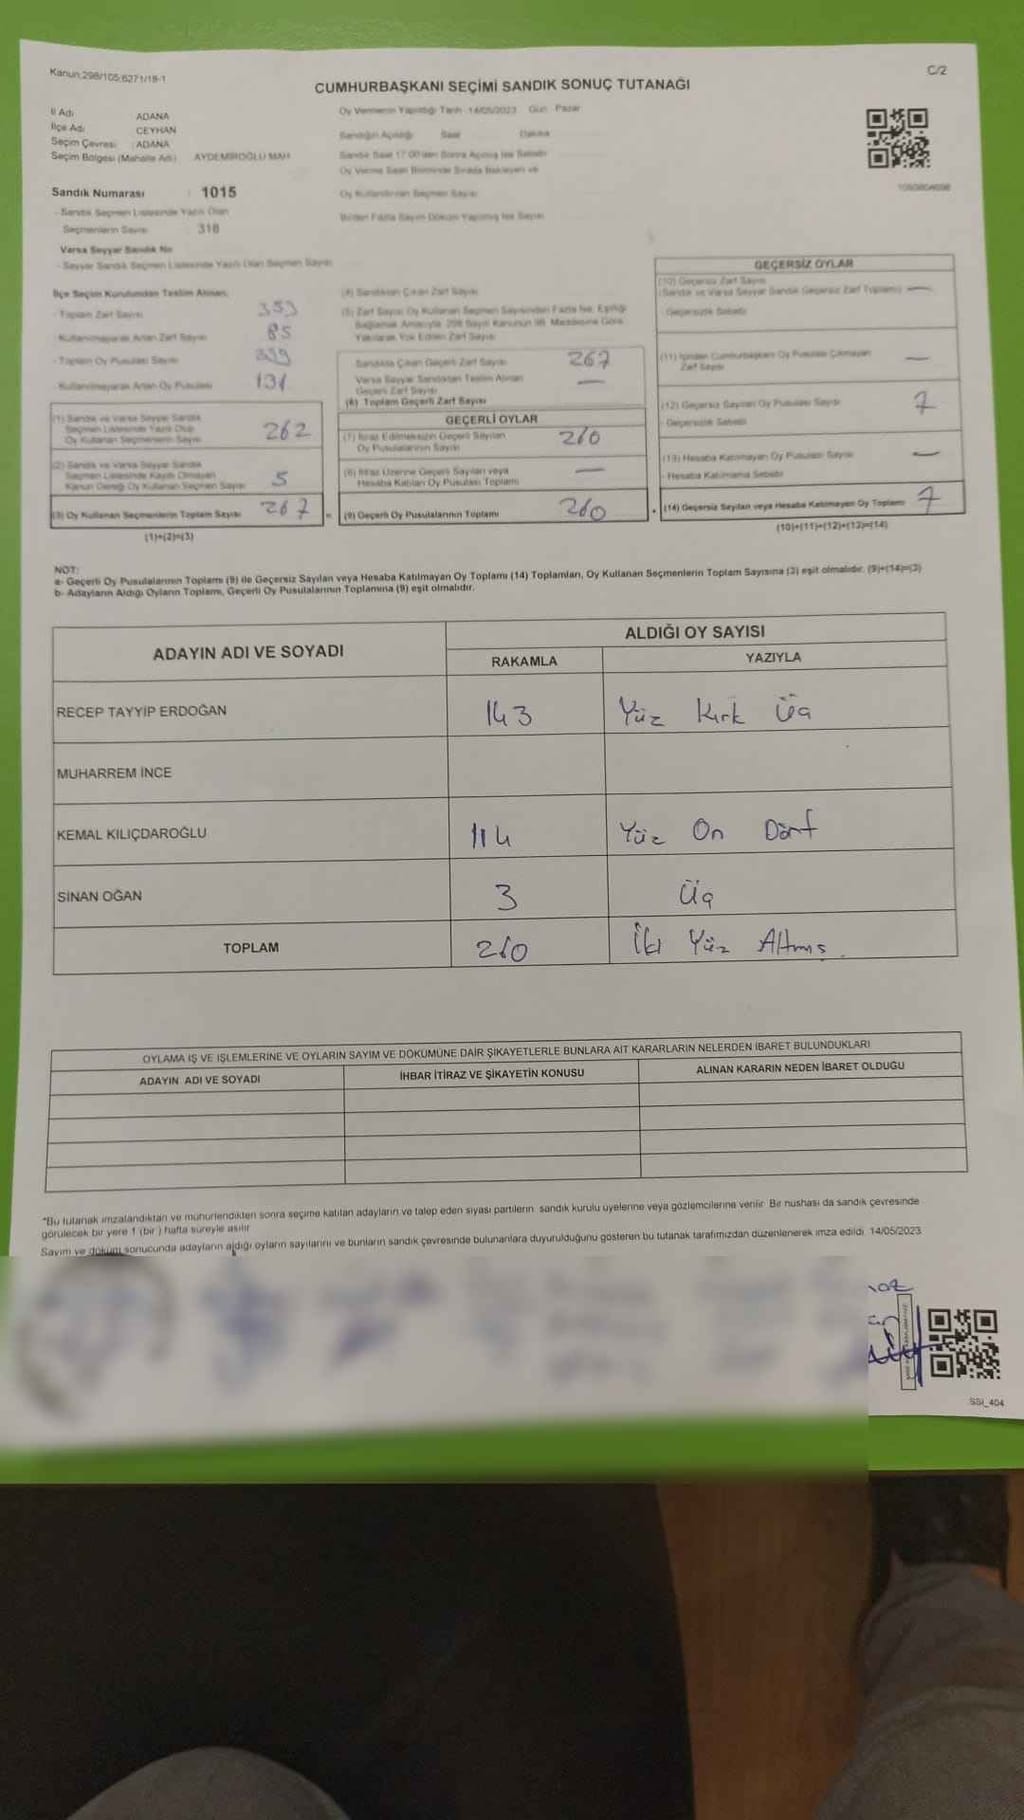 Kanun:298/105;6271/18-1
C/2
CUMHURBAŞKANI SEÇİMİ SANDIK SONUÇ TUTANAĞI
İl Adı ADANA
İlçe Adı CEYHAN
Seçim Çevresi : ADANA
Seçim Bölgesi (Mahalle Adı) AYDEMİROĞLU MAH
Sandık Numarası : 1015
- Sandık Seçmen Listesinde Yazılı Olan
Seçmenlerin Sayısı 318
Varsa Seyyar Sandık No
- Seyyar Sandık Seçmen Listesinde Yazılı Olan Seçmen Sayısı
Oy Vermenin Yapıldığı Tarih : 14/05/2023 Gün : Pazar
Sandığın Açıldığı Saat Dakika
Oy Kullandırılan Seçmen Sayısı
Birden Fazla Sayım Döküm Yapılmış İse Sayısı
İlçe Seçim Kurulundan Teslim Alınan;
- Toplam Zarf Sayısı
- Kullanılmayarak Artan Zarf Sayısı 85
- Toplam Oy Pusulası Sayısı
- Kullanılmayarak Artan Oy Pusulası 131
(1) Sandık ve Varsa Seyyar Sandık
Seçmen Listesinde Yazılı Olup
Oy Kullanan Seçmenlerin Sayısı 262
(2) Sandık ve Varsa Seyyar Sandık
Seçmen Listesinde Kayıtlı Olmayan
Kanun Gereği Oy Kullanan Seçmen Sayısı 5
(3) Oy Kullanan Seçmenlerin Toplam Sayısı 267
(1)+(2)=(3)
(4) Sandıktan Çıkan Zarf Sayısı
(5) Zarf Sayısı Oy Kullanan Seçmen Sayısından Fazla İse, Eşitliği
Sağlamak Amacıyla 298 Sayılı Kanunun 98. Maddesine Göre
Yakılarak Yok Edilen Zarf Sayısı
Sandıkta Çıkan Geçerli Zarf Sayısı 267
Varsa Seyyar Sandıktan Teslim Alınan
Geçerli Zarf Sayısı —
(6) Toplam Geçerli Zarf Sayısı
GEÇERLİ OYLAR
(7) İtiraz Edilmeksizin Geçerli Sayılan
Oy Pusulalarının Sayısı 260
(8) İtiraz Üzerine Geçerli Sayılan veya
Hesaba Katılan Oy Pusulası Toplamı —
= (9) Geçerli Oy Pusulalarının Toplamı 260
GEÇERSİZ OYLAR
(10) Geçersiz Zarf Sayısı
(Sandık ve Varsa Seyyar Sandık Geçersiz Zarf Toplamı) —
- Geçersizlik Sebebi
(11) İçinden Cumhurbaşkanı Oy Pusulası Çıkmayan
Zarf Sayısı —
(12) Geçersiz Sayılan Oy Pusulası Sayısı 7
- Geçersizlik Sebebi
(13) Hesaba Katılmayan Oy Pusulası Sayısı —
- Hesaba Katılmama Sebebi
+ (14) Geçersiz Sayılan veya Hesaba Katılmayan Oy Toplamı 7
(10)+(11)+(12)+(13)=(14)
NOT:
a- Geçerli Oy Pusulalarının Toplamı (9) ile Geçersiz Sayılan veya Hesaba Katılmayan Oy Toplamı (14) Toplamları, Oy Kullanan Seçmenlerin Toplam Sayısına (3) eşit olmalıdır. (9)+(14)=(3)
b- Adayların Aldığı Oyların Toplamı, Geçerli Oy Pusulalarının Toplamına (9) eşit olmalıdır.
ADAYIN ADI VE SOYADI
ALDIĞI OY SAYISI
RAKAMLA YAZIYLA
RECEP TAYYİP ERDOĞAN 143 Yüz Kırk Üç
MUHARREM İNCE
KEMAL KILIÇDAROĞLU 114 Yüz On Dört
SİNAN OĞAN 3 Üç
TOPLAM 260 İki Yüz Altmış
OYLAMA İŞ VE İŞLEMLERİNE VE OYLARIN SAYIM VE DÖKÜMÜNE DAİR ŞİKAYETLERLE BUNLARA AİT KARARLARIN NELERDEN İBARET BULUNDUKLARI
ADAYIN ADI VE SOYADI İHBAR İTİRAZ VE ŞİKAYETİN KONUSU ALINAN KARARIN NEDEN İBARET OLDUĞU
*Bu tutanak imzalandıktan ve mühürlendikten sonra seçime katılan adayların ve talep eden siyasi partilerin sandık kurulu üyelerine veya gözlemcilerine verilir. Bir nüshası da sandık çevresinde
görülecek bir yere 1 (bir) hafta süreyle asılır
Sayım ve döküm sonucunda adayların aldığı oyların sayılarını ve bunların sandık çevresinde bulunanlara duyurulduğunu gösteren bu tutanak tarafımızdan düzenlenerek imza edildi. 14/05/2023
SSI_404